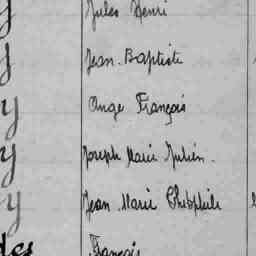 Jules Henri
Jean-Baptiste
Ange François
Joseph Marie Julien.
Jean Marie Théophile
François